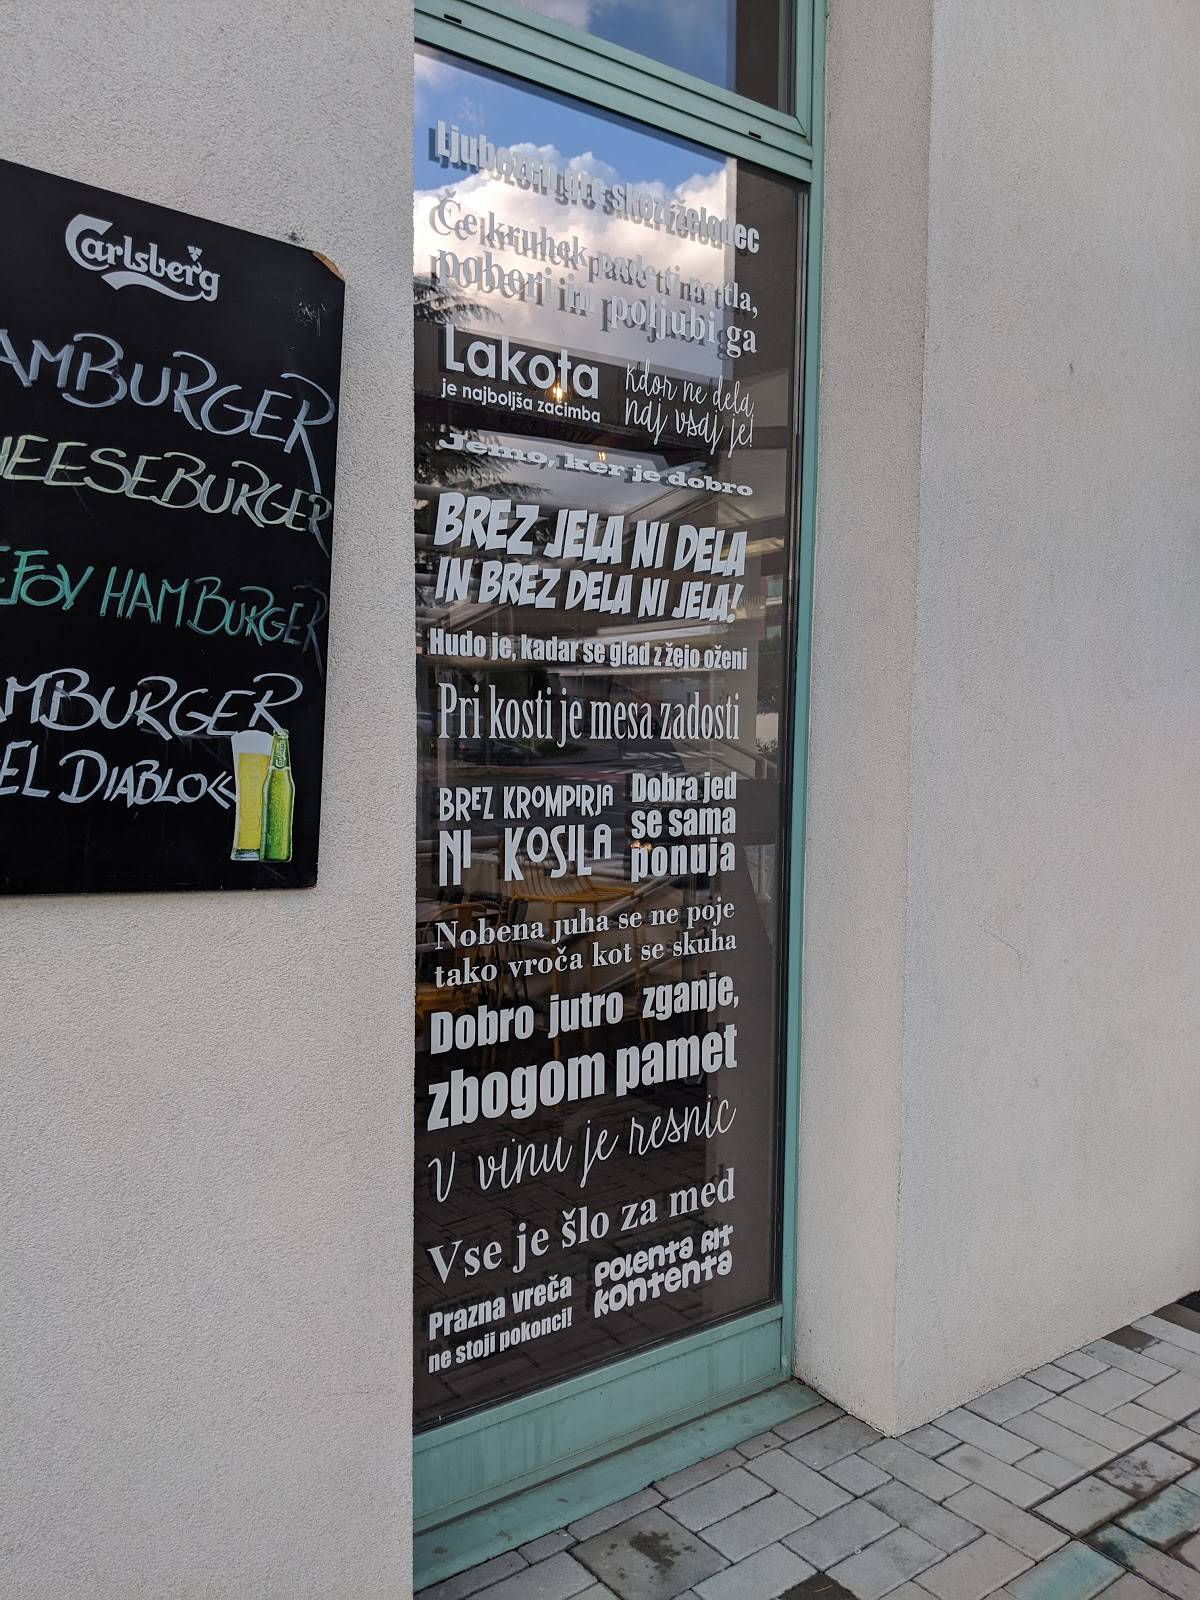 Carlsberg
AMBURGER
HEESEBURGER
EFOV HAMBURGER
AMBURGER
EL DIABLO«
Ljubezen gre skozi želodec
Če kruhek pade ti na tla,
poberi in poljubi ga
Lakota
je najboljša začimba
kdor ne dela,
naj vsaj je!
Jemo, ker je dobro
BREZ JELA NI DELA
IN BREZ DELA NI JELA!
Hudo je, kadar se glad z žejo oženi
Pri kosti je mesa zadosti
BREZ KROMPIRJA
NI KOSILA
Dobra jed
se sama
ponuja
Nobena juha se ne poje
tako vroča kot se skuha
Dobro jutro zganje,
zbogom pamet
V vinu je resnic
Vse je šlo za med
Prazna vreča
ne stoji pokonci!
POLENTA RIT
KONTENTA